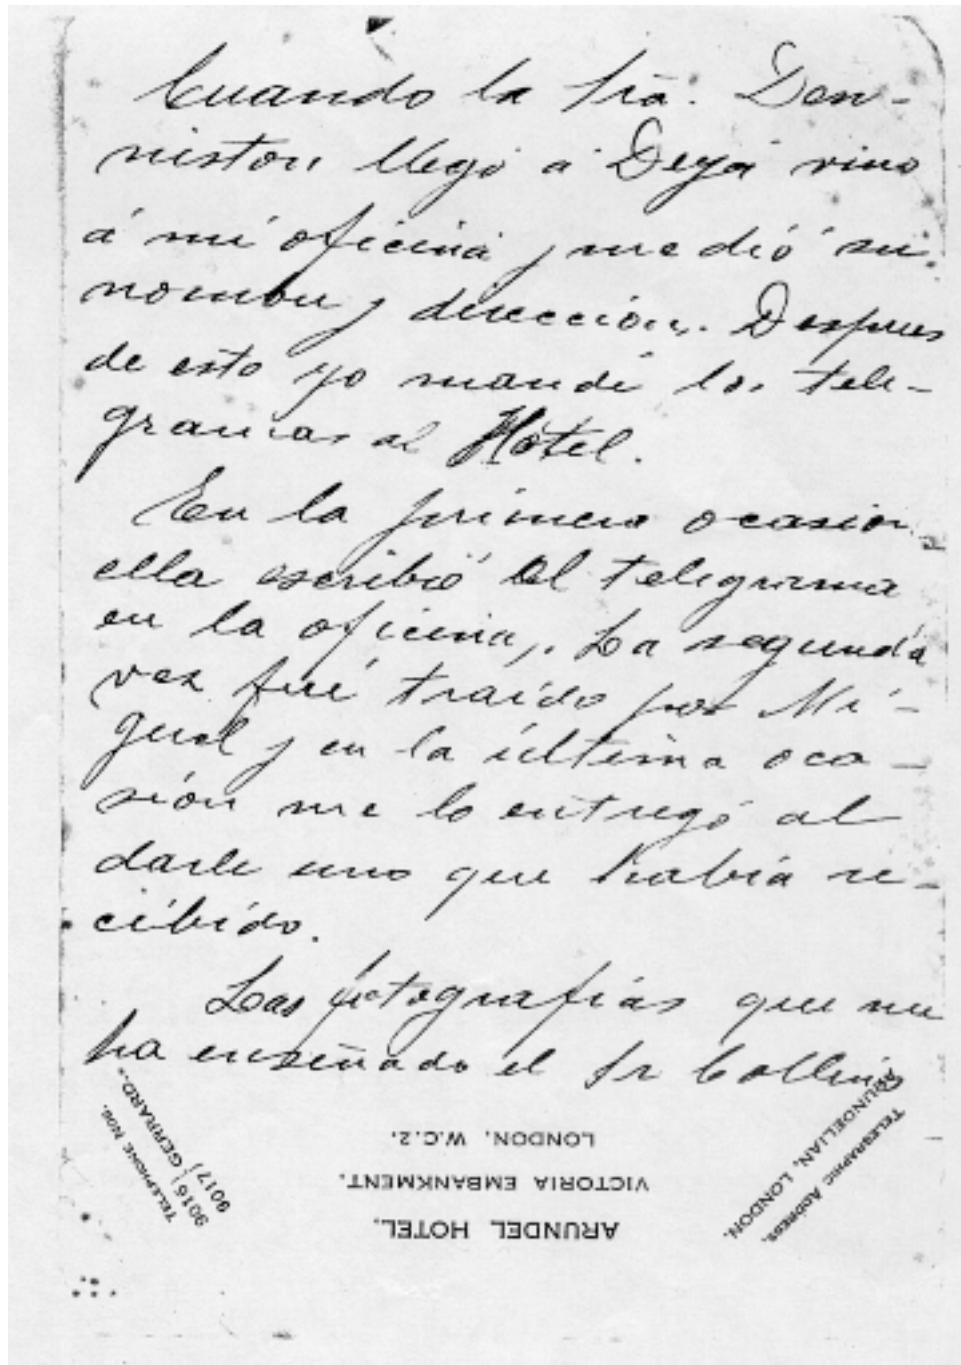 Cuando la Sra. Den-
niston llegó a Deya vino
á mi oficina y me dió su
nombre y dirección. Despues
de esto yo mandé los tele-
gramas al Hotel.
En la primera ocasion
ella escribió el telegrama
en la oficina,. La segunda
vez fué traído por Mi-
guel y en la última oca-
sión me lo entregó al
darle uno que había re-
cibido.
Las fotografías que me
ha enseñado el Sr Collins
TELEPHONE NOS.
9016 } GERRARD.
9017 }
LONDON. W.C.2.
VICTORIA EMBANKMENT.
ARUNDEL HOTEL.
TELEGRAPHIC ADDRESS,
ARUNDELIAN, LONDON.